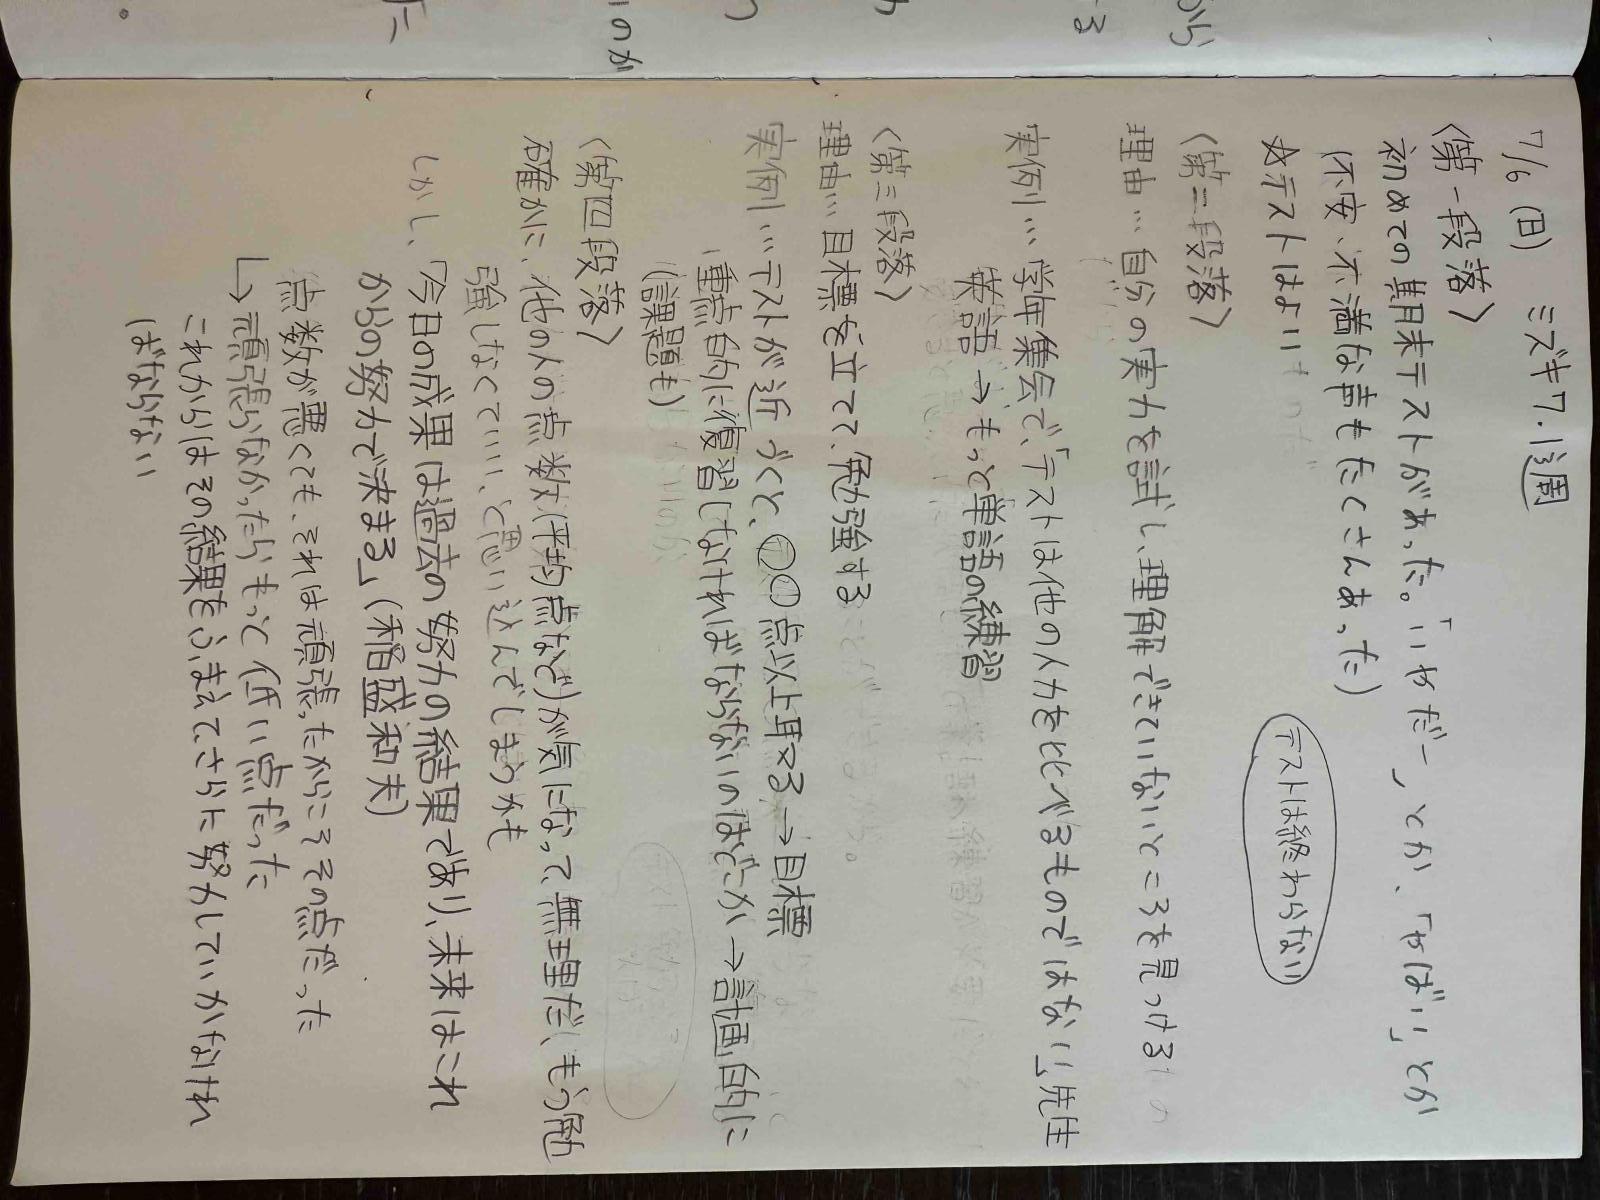 7/6(日) ミズキ7.1週
〈第一段落〉
初めての期末テストがあった。「いやだー」とか、「やばい」とか
(不安、不満な声もたくさんあった)
☆テストはよい
テストは終わらない
〈第二段落〉
理由…自分の実力を試し、理解できていないところを見つける
実例…学年集会で、「テストは他の人力を比べるものではない」先生
英語→もっと単語の練習
〈第三段落〉
理由…目標を立てて、勉強する
実例…テストが近づくと、〇〇点以上取る→目標
重点的に復習しなければならないのはどこか→計画的に
(課題も)
〈第四段落〉
確かに、他の人の点数(平均点など)が気になって、無理だ、もう勉
強しなくていい、と思い込んでしまうかも
しかし、「今日の成果は過去の努力の結果であり、未来はこれ
からの努力で決まる」(稲盛和夫)
点数が悪くても、それは頑張ったからこその点だった
↳頑張らなかったらもっと低い点だった
これからはその結果もふまえて、さらに努力していかなけれ
ばならない